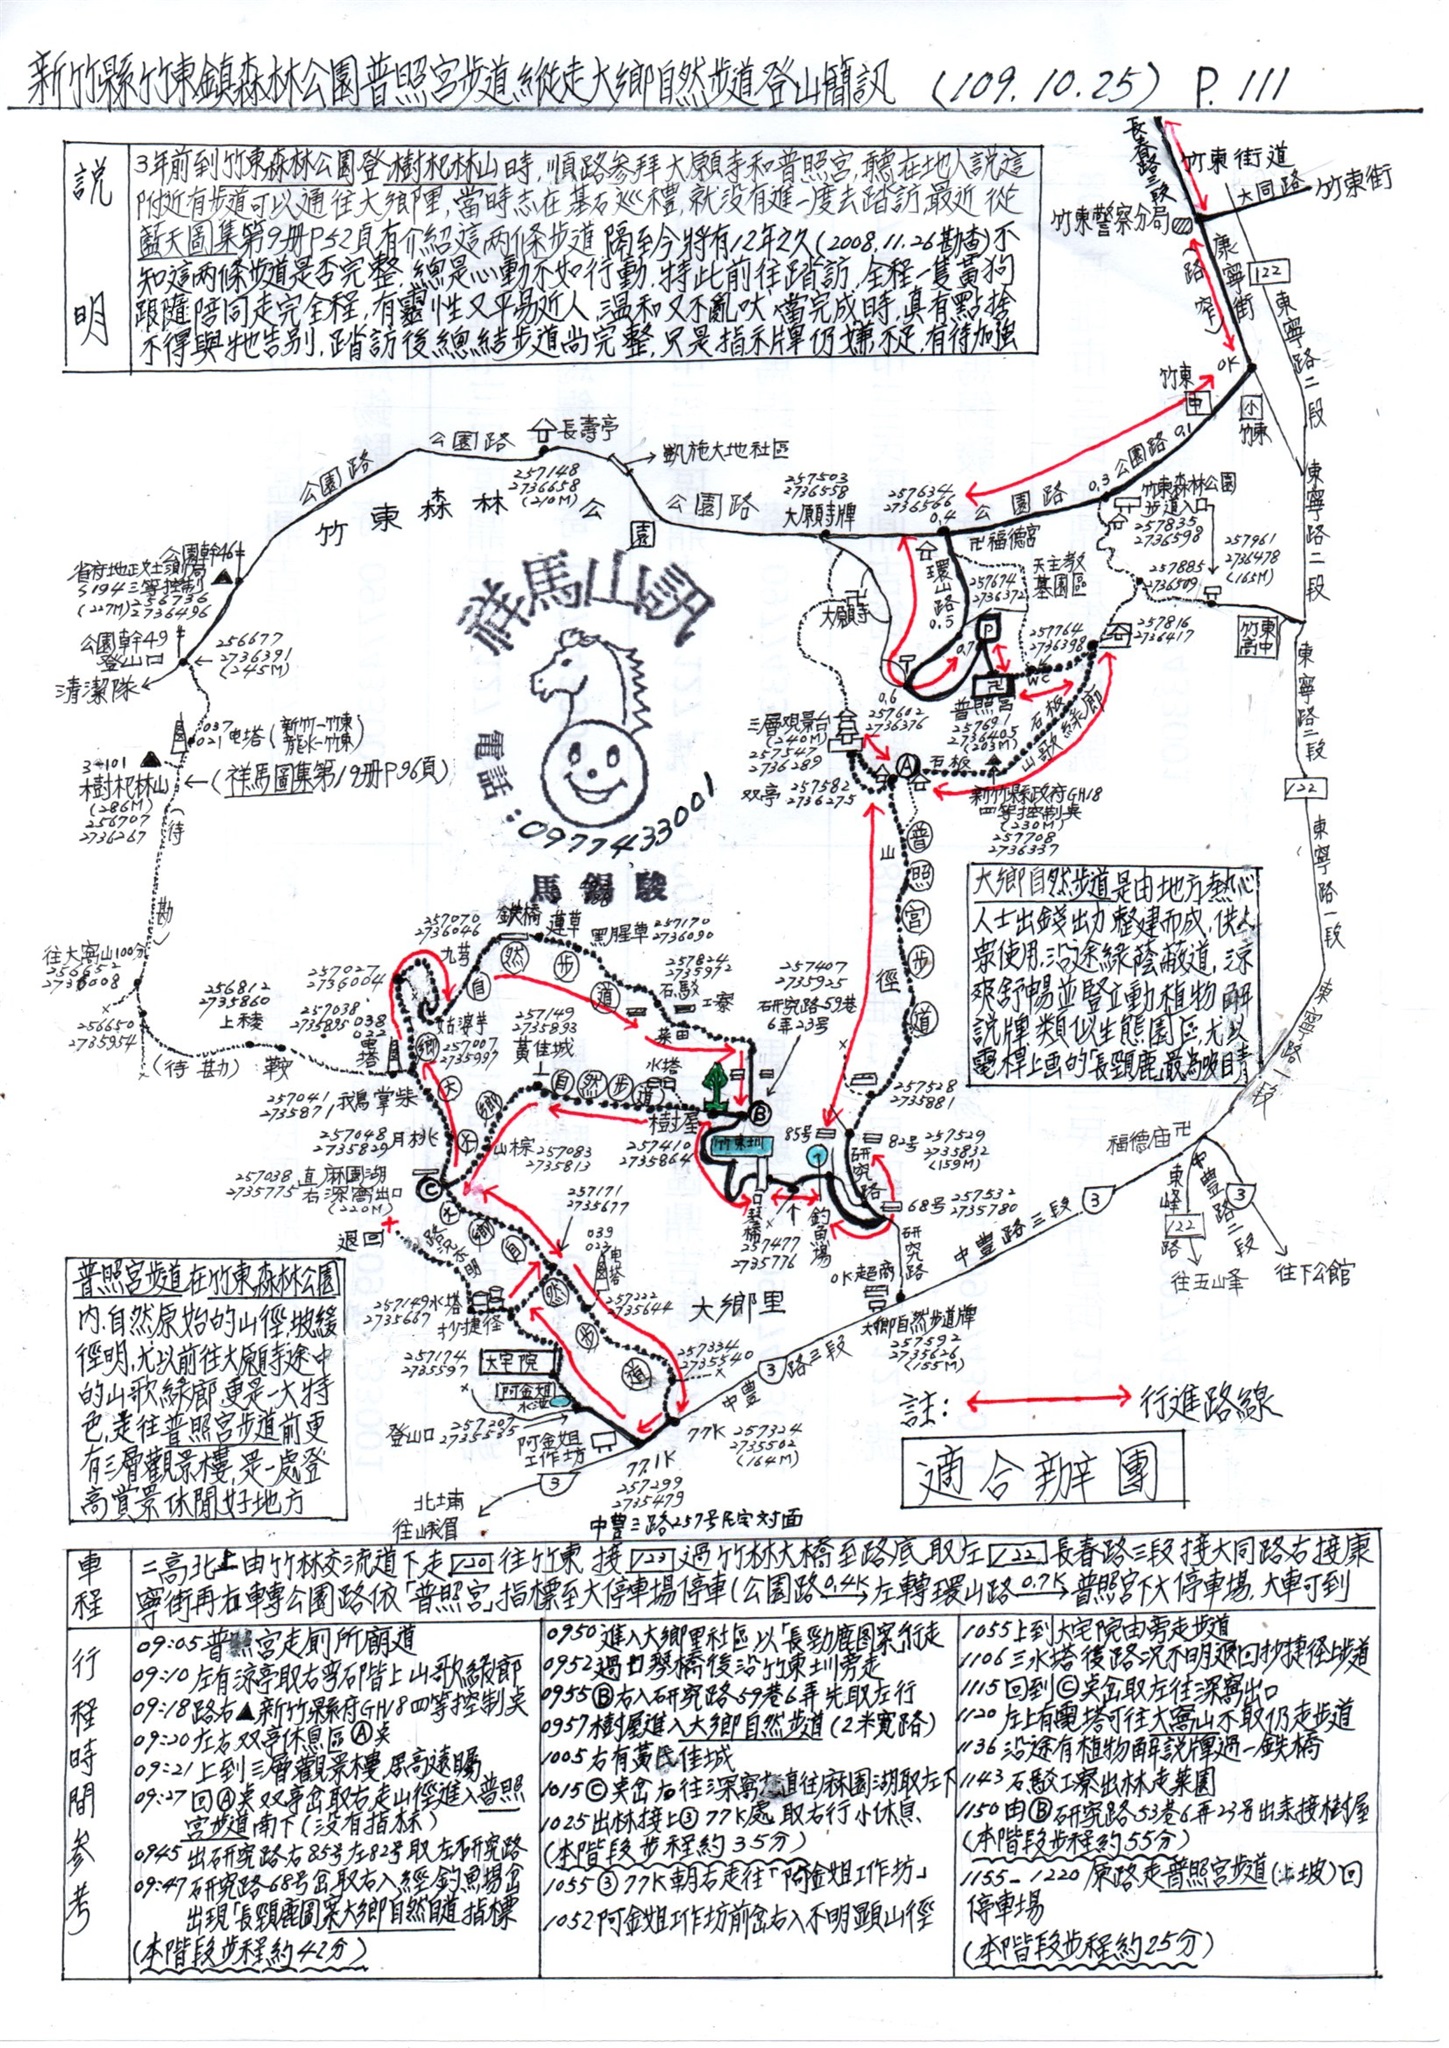 新竹縣竹東鎮森林公園普照宮步道縱走大鄉自然步道登山簡訊 (109.10.25) P.111
說明
3年前到竹東森林公園登樹杞林山時,順路參拜大願寺和普照宮,聽在地人說這
附近有步道可以通往大鄉里,當時志在基石巡禮,就没有進一度去踏訪,最近從
藍天圖集第9册P52頁有介紹這兩條步道,隔至今將有12年之久(2008.11.26勘查)不
知這兩條步道是否完整,總是心動不如行動,特此前往踏訪,全程一隻黃狗
跟隨陪同走完全程,有靈性又平易近人,溫和又不亂吠,當完成時,真有點捨
不得與牠告别,踏訪後總結步道尚完整,只是指示牌仍嫌不足,有待加強
長春路三段
竹東街道
大同路
竹東街
竹東警察分局
康寧街
(路窄)
122
東寧路二段
0K
竹東
中
小
竹東
0.1
公園路
0.3
公園路
公園路
長壽亭
257148
2736658
(210M)
凱施大地社區
竹東森林公園
公園路
257503
2736558
大願寺牌
257634
2736566
0.4
公園路
卍福德宮
竹東森林公園
步道入口
257835
2736598
257961
2736478
(165M)
257885
2736509
東寧路二段
竹東高中
天主教
墓園區
257674
2736372
環山路
0.5
大願寺
P
0.7
0.6
257764
2736398
257816
2736417
WC
普照宮
257691
2736405
(203M)
石板
山歌綠廊
257602
2736376
三層观景台
(240M)
257547
2736289
双亭
257582
2736275
A
石板
新竹縣政府GH18
四等控制点
(230M)
257708
2736337
公園幹46
省府地政土測局
S194三等控制
(227M) 256736
2736496
公園幹49
登山口
256677
2736391
(245M)
清潔隊
037
021 电塔 (新竹-竹東
龍水-竹東)
3-101
樹杞林山
(286M)
256707
2736267
(祥馬圖集第19册P.96頁)
(待勘)
祥馬山訊
電話:0977433001
馬錫駿
山徑
普照宮步道
東寧路二段
122
東寧路一段
東寧路一段
大鄉自然步道是由地方熱心
人士出錢出力整建而成,供人
衆使用,沿途綠蔭蔽道,涼
爽舒暢並豎立動植物解
説牌,類似生態園區,尤以
電桿上画的長頸鹿,最為吸目睛
往大窩山100分
256652
2736008
256650
2735954
256812
2735860
上稜
(待勘) 鞍
257027
2736004
257038
2735895
038
022
电塔
257070
2736046
九芎
鉄橋
蓪草
黑腥草
257170
2736090
自然步道
257824
2735972
石駁
工寮
菜田
水塔
姑婆芋
257007
2735997
257149
2735893
黃佳城
257407
2735925
研究路59巷
6弄23号
自然步道
樹屋
257410
2735864
B
竹東圳
257041
2735871
我爲掌柴
257048
2735829
月桃
山棕 257083
2735813
257038
2735775
直麻園湖
右深窩出口
(220M)
C
退回
路況不明
大鄉自然步道
257171
2735677
039
023
电塔
257222
2735644
257149
2735667
水塔
抄捷徑
257174
2735597
大宅院
阿金姐
水池
登山口
257207
2735535
阿金姐
工作坊
257334
2735540
77K
257324
2735502
(164M)
77.1K
257299
2735479
中豐三路257号民宅対面
北埔
往峨眉
大鄉里
口琴橋
257477
2735776
釣魚場
85号
82号 257529
2735832
(159M)
257528
2735881
68号 257532
2735780
研究路
研究路
OK超商
大鄉自然步道牌
257592
2735626
(155M)
中豐路三段 3
中豐 3 路三段
福德庙卍
東峰路
122
中豐路二段
3
往五山峯
往下公館
普照宮步道在竹東森林公園
内,自然原始的山徑,坡緩
徑明,尤以前往大願寺途中
的山歌綠廊,更是一大特
色,是往普照宮步道前更
有三層觀景樓,是一處登
高賞景休閒好地方
註: 行進路線
適合辦團
車程
二高北上由竹林交流道下走120往竹東接123過竹林大橋至路底取左122長春路三段接大同路右接康
寧街再右轉公園路依「普照宮」指標至大停車場停車(公園路0.4K左轉環山路0.7K普照宮下大停車場,大車可到
行程時間參考
09:05普照宮走廁所廟道
09:10左有涼亭取右弯石階上山歌綠廊
09:18路右▲新竹縣府GH18四等控制点
09:20左右双亭休息區Ⓐ点
09:21上到三層觀景樓,居高遠矚
09:27回Ⓐ点双亭岔取右走山徑進入普照
宮步道南下(没有指標)
0945出研究路右85号左82号取左研究路
09:47研究路68号岔取右入經釣魚場岔
出現「長頸鹿圖案大鄉自然自道」指標
(本階段步程約42分)
0950進入大鄉里社區以「長勁鹿圖案」行走
0952過口琴橋後沿竹東圳旁走
0955Ⓑ右入研究路59巷6弄先取左行
0957樹屋進入大鄉自然步道(2米寬路)
1005右有黃民佳城
1015Ⓒ点岔右往深窩直往麻園湖取左下
1025出林接上③77K處,取右行小休息
(本階段步程約35分)
1055③77K朝右走往「阿金姐工作坊」
1052阿金姐工作坊前岔右入不明顯山徑
1055上到大宅院由旁走步道
1106三水塔後路況不明退回抄捷徑上步道
1115回到Ⓒ点岔取左往深窩出口
1120左上有電塔可往大窩山不取仍走步道
1136沿途有植物解説牌過一鉄橋
1143石駁工寮出林走菜園
1150由Ⓑ研究路53巷6弄23号出來接樹屋
(本階段步程約55分)
1155-1220原路走普照宮步道(上坡)回
停車場
(本階段步程約25分)